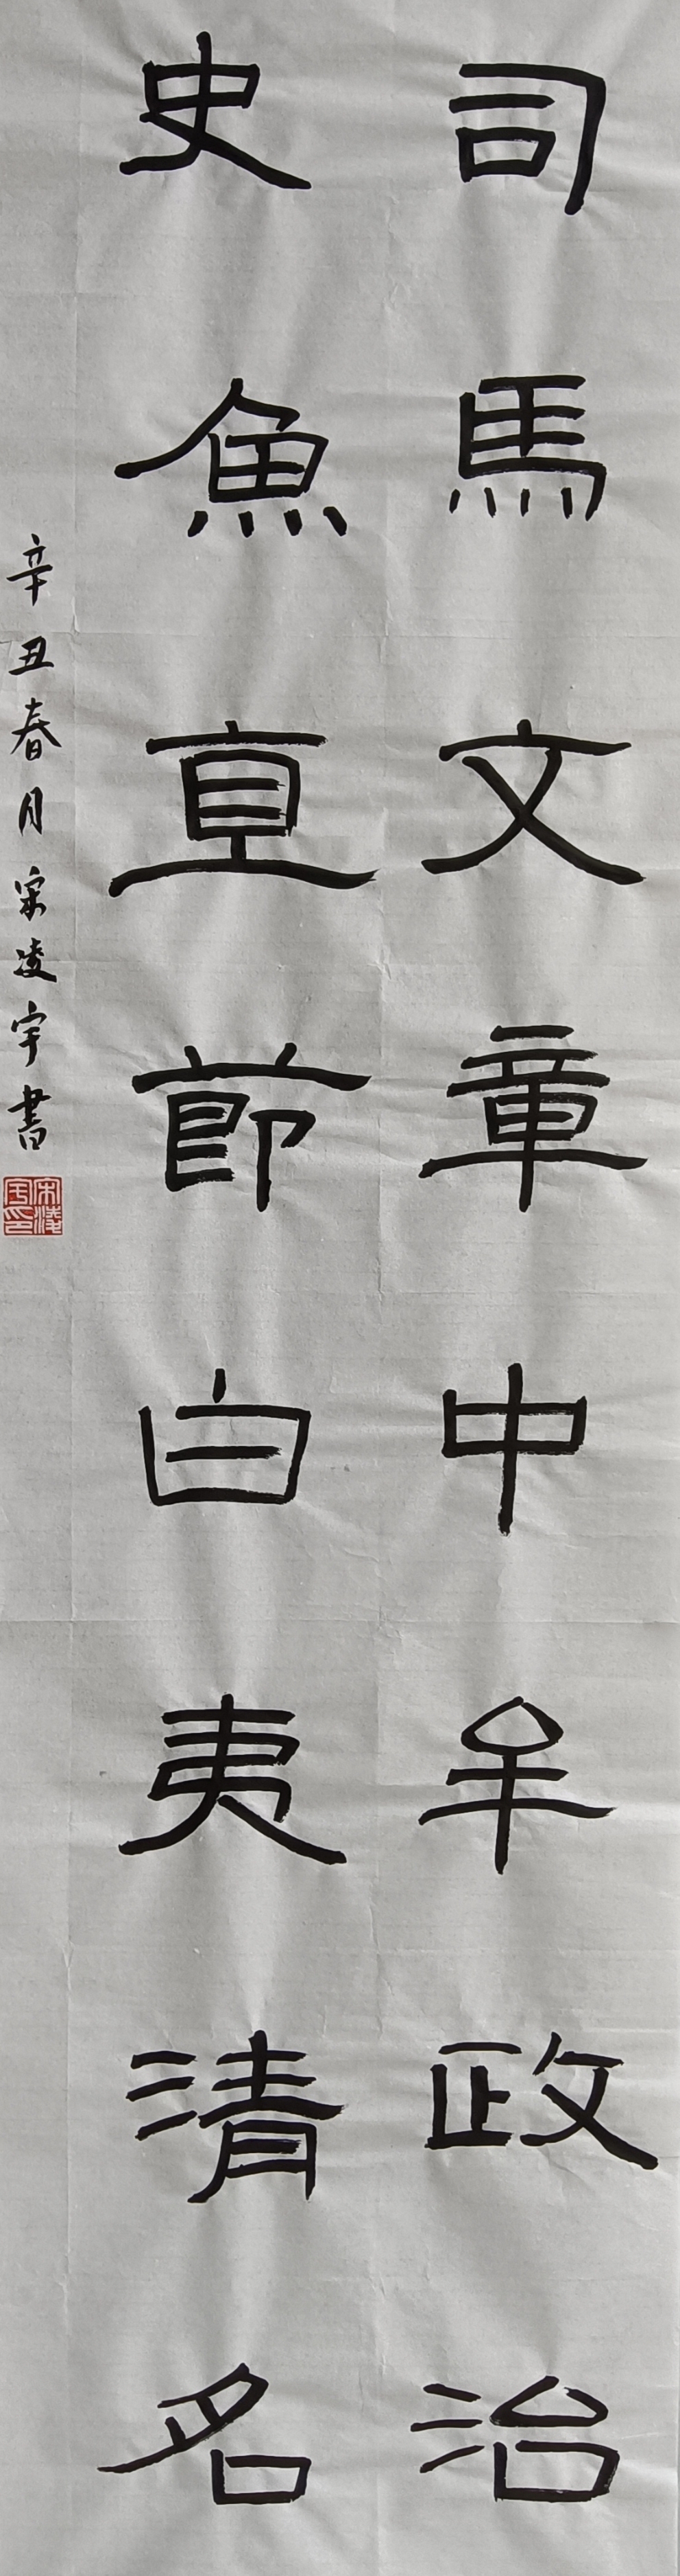 司馬文章中牟政治
史魚直節白夷清名
辛丑春月宋凌宇書
宋凌宇印